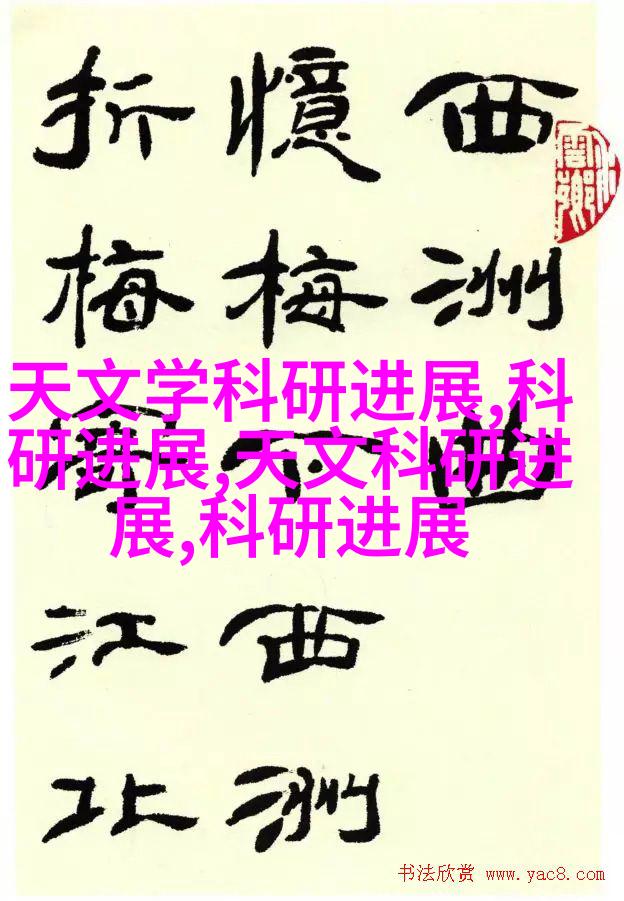 西洲曲
憶梅下西洲
折梅寄江北
天文学科研进展,科
研进展,天文科研进
展,科研进展
书法欣赏 www.yac8.com